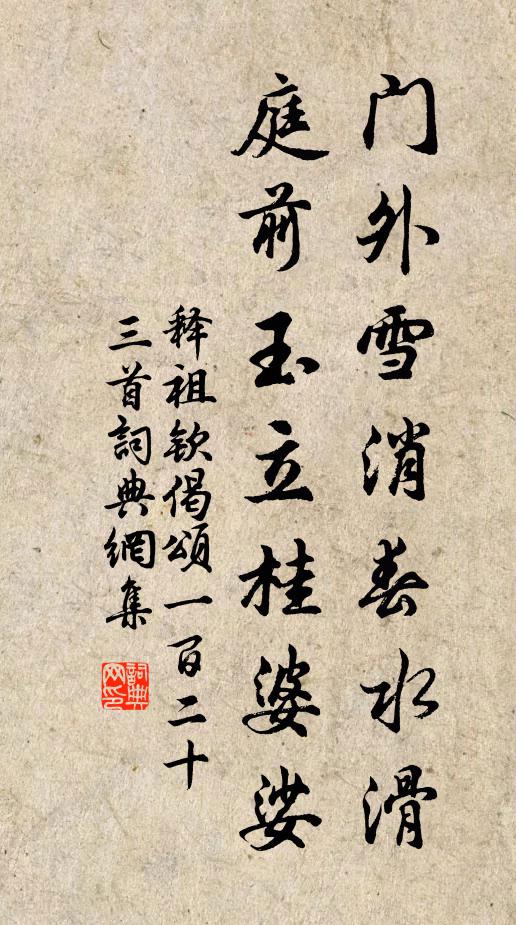 门外雪消春水滑
庭前玉立桂婆娑
释祖钦偈颂一百二十
三首詞典網集
詞典
网印